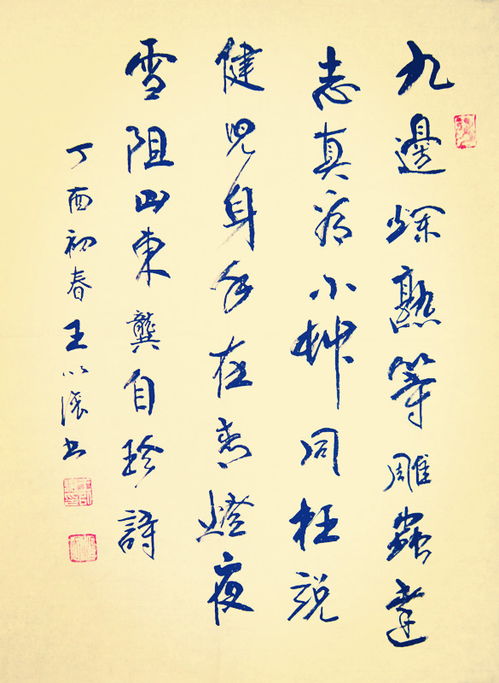 九邊爛熟等雕蟲遠
志真看小艸同枉説
健兒身手在青燈夜
雪阻山東龔自珍詩
丁酉初春王以書